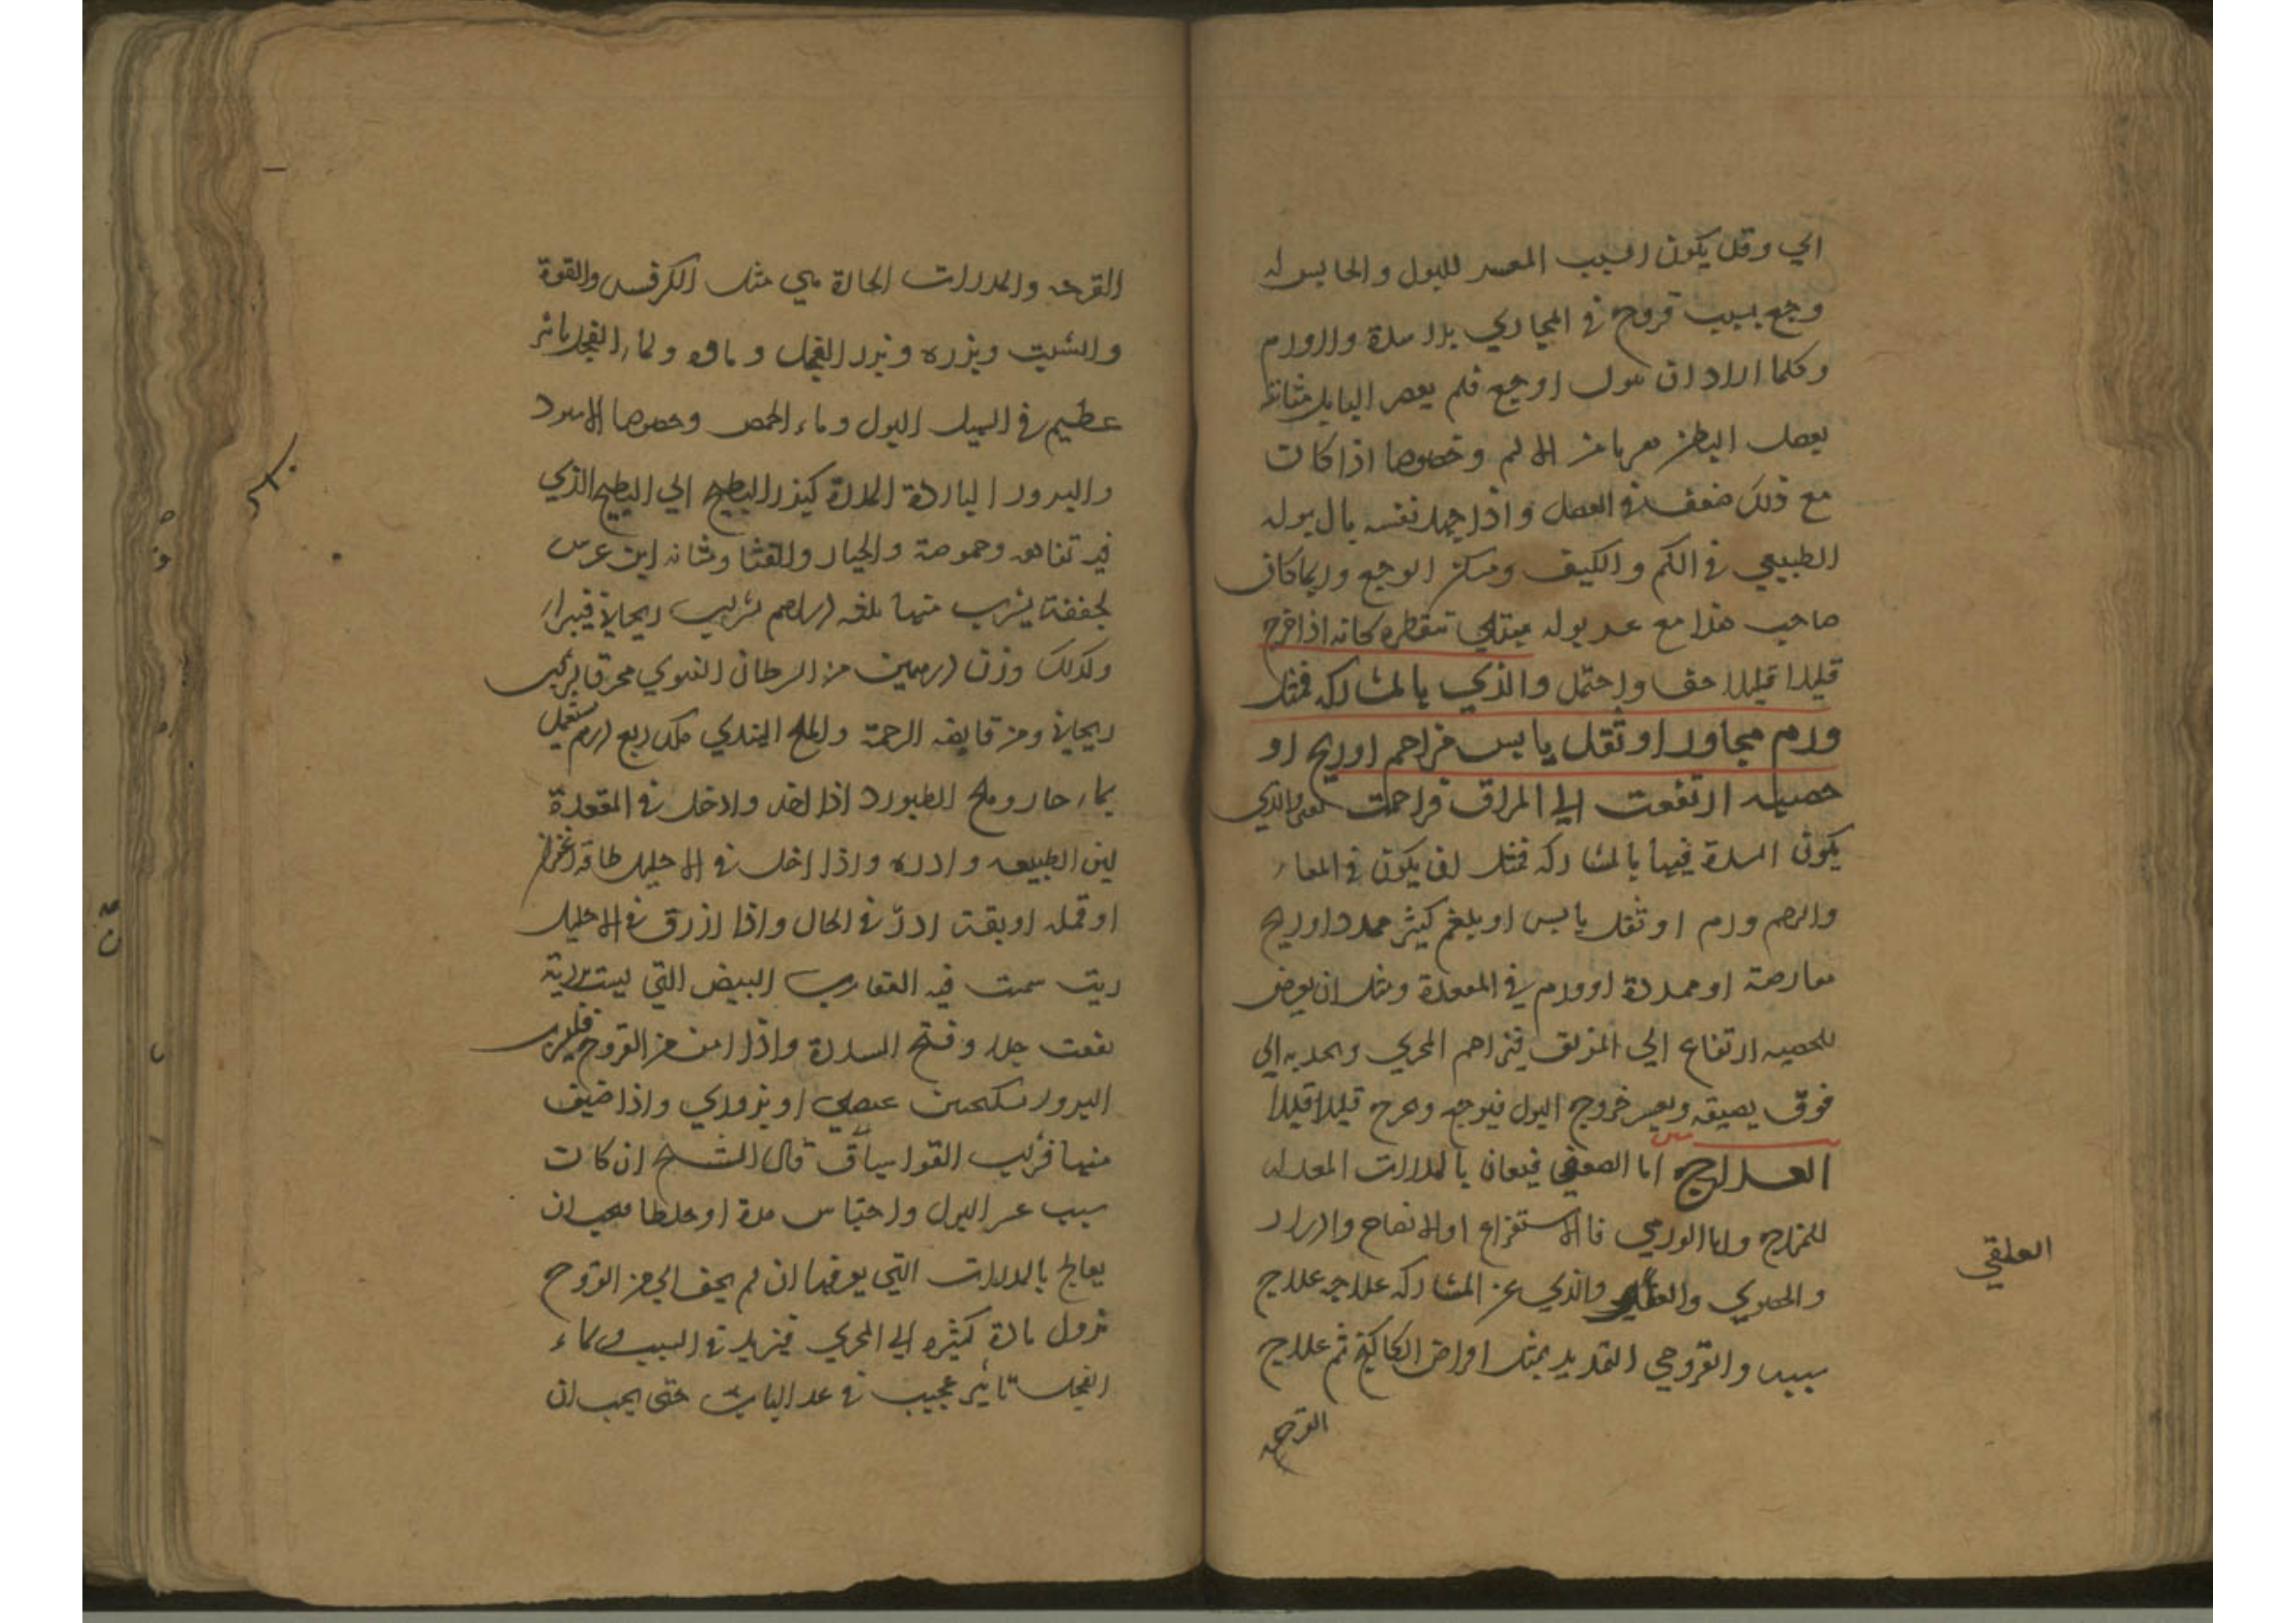 الي وقد يكون السبب المعسر للبول والحابس له
وجع بسبب قروح في المجاري بلا مدة والورم
وكلما اراد ان يبول اوجع فلم يعصر البايل مثانته
بعضل البطن هربا من الالم وخصوصا اذا كانت
مع ذلك ضعف في العضل واذا جهد نفسه بال بوله
الطبيعي في الكم والكيف وسكن الوجع وربما كان
صاحب هذا مع عسر بوله مبتلي بتقطره كانه اذا خرج
قليلا قليلا خف واحتمل والذي بالمشاركه فمثل
ورم مجاور او ثقل يابس مزاحم او ريح او
خصيه ارتفعت الي المراق فزاحمت والذي
يكون السدة فيها بالمشاركه فمثل ان يكون في المعاء
والرحم ورم او ثقل يابس او بلغم كثير ممدد او ريح
معارضة او ممددة او ورم في المقعدة ومثل ان يعرض
للخصيه ارتفاع الي المزلق فيزاحم المجري ويجذبه الي
فوق يضيقه ويعسر خروج البول فيوجع ويخرج قليلا قليلا
العلاج اما الضعفي فيعان بالمدرات المعدله
للمزاج واما الورمي فالاستفراغ او الانضاج والادرار
والحصوي والذي عن المشاركه علاجه علاج
سببه والقروحي التخدير بمثل اقراص الكاكنج ثم علاج
القرحه
العلقي
القرحه والمدرات الحارة هي مثل الكرفس والفوة
والشبت وبزره وبزر الفجل وماوه ولماء الفجل تاثير
عظيم في البول وماء الحمص وخصوصا الاسود
والبزور الباردة المدرة كبذر البطيخ الي البطيخ الذي
فيه تفاهه وحموضة والخيار والقثا ومثانه ابن عرس
مجففة يشرب منها ثلثه دراهم بشراب ريحاني فيبرا
وكذلك وزن درهمين من السرطان النهوي محرقا بشراب
ريحاني ومن قانصه الرخمة والملح الهندي مكد ربع درهم يستعمل
بماء حار وملح الطبرزد اذا اخذ وادخل في المقعدة
لين الطبيعه وادره واذا ادخل في الاحليل طاقة زعفران
او قمله او بقة ادرّ في الحال واذا زرق في الاحليل
زيت شمست فيه العقارب البيض التي ليست بردية
نفعت جدا وفتح السدة واذا امن من القروح فليشرب
البزور بسكنجبين عنصلي او بزوري واذا اضيف
منها قريب القوا سباق قال الشيخ ان كانت
سبب عسر البول واحتباس مدة او خلطا فيجب ان
يعالج بالمدرات التي يعرفها ان لم يخف الي من القروح
نزول مادة كثيره الي المجري فيزيد في السبب ولماء
الفجل تاثير عجيب في هذا الباب حتي يجب ان